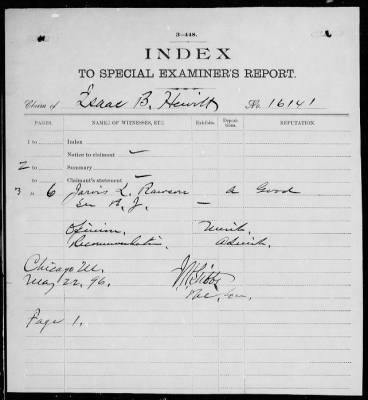 3—448.
INDEX
TO SPECIAL EXAMINER'S REPORT.
Claim of Isaac B. Hewitt No. 16141
PAGES. NAMES OF WITNESSES, ETC. Exhibits. Depositions. REPUTATION.
1 to Index
Notice to claimant —
2 to Summary
to Claimant's statement —
3 to 6 Jarvis L. Rawson A Good
—
Opinion. Merits
Recommendation. Admits.
Chicago Ill.
May 22, 96.
Page 1.